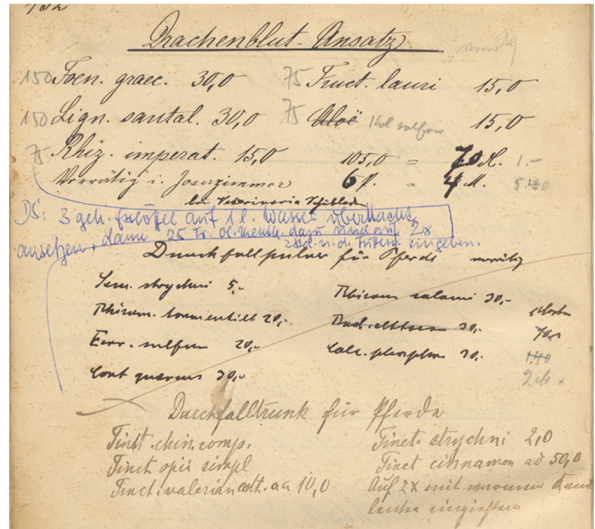 132
Drachenblut-Ansatz vorrätig
150 Foen. graec. 30,0 75 Fruct. lauri 15,0
150 Lign. santal. 30,0 75 Aloë 15,0
75 Rhiz. imperat. 15,0 105,0 = 70 1.-
Vorrätig i. 6 = 4
bei Veterinaria
DS: 3 geh. Esslöffel auf 1 l. Wasser über Nacht
ansetzen, dann 25 Tr. ol. menth. dazu und auf 2x
eingeben.
Durchfallpulver für Pferde vorrätig
Sem. strychni 5,- Rhizom. calami 30,-
Rhizom. tormentill 20,- 30,-
Ferr. sulfur 20,- Calc. phosphor 30,-
Cort quercus 30,-
Durchfalltrunk für Pferde
Tinct. chin. comp. Tinct. strychni 2,0
Tinct opii simpl Tinct cinnamom ad 50,0
Tinct. valerian aa 10,0 Auf 2x mit warmer